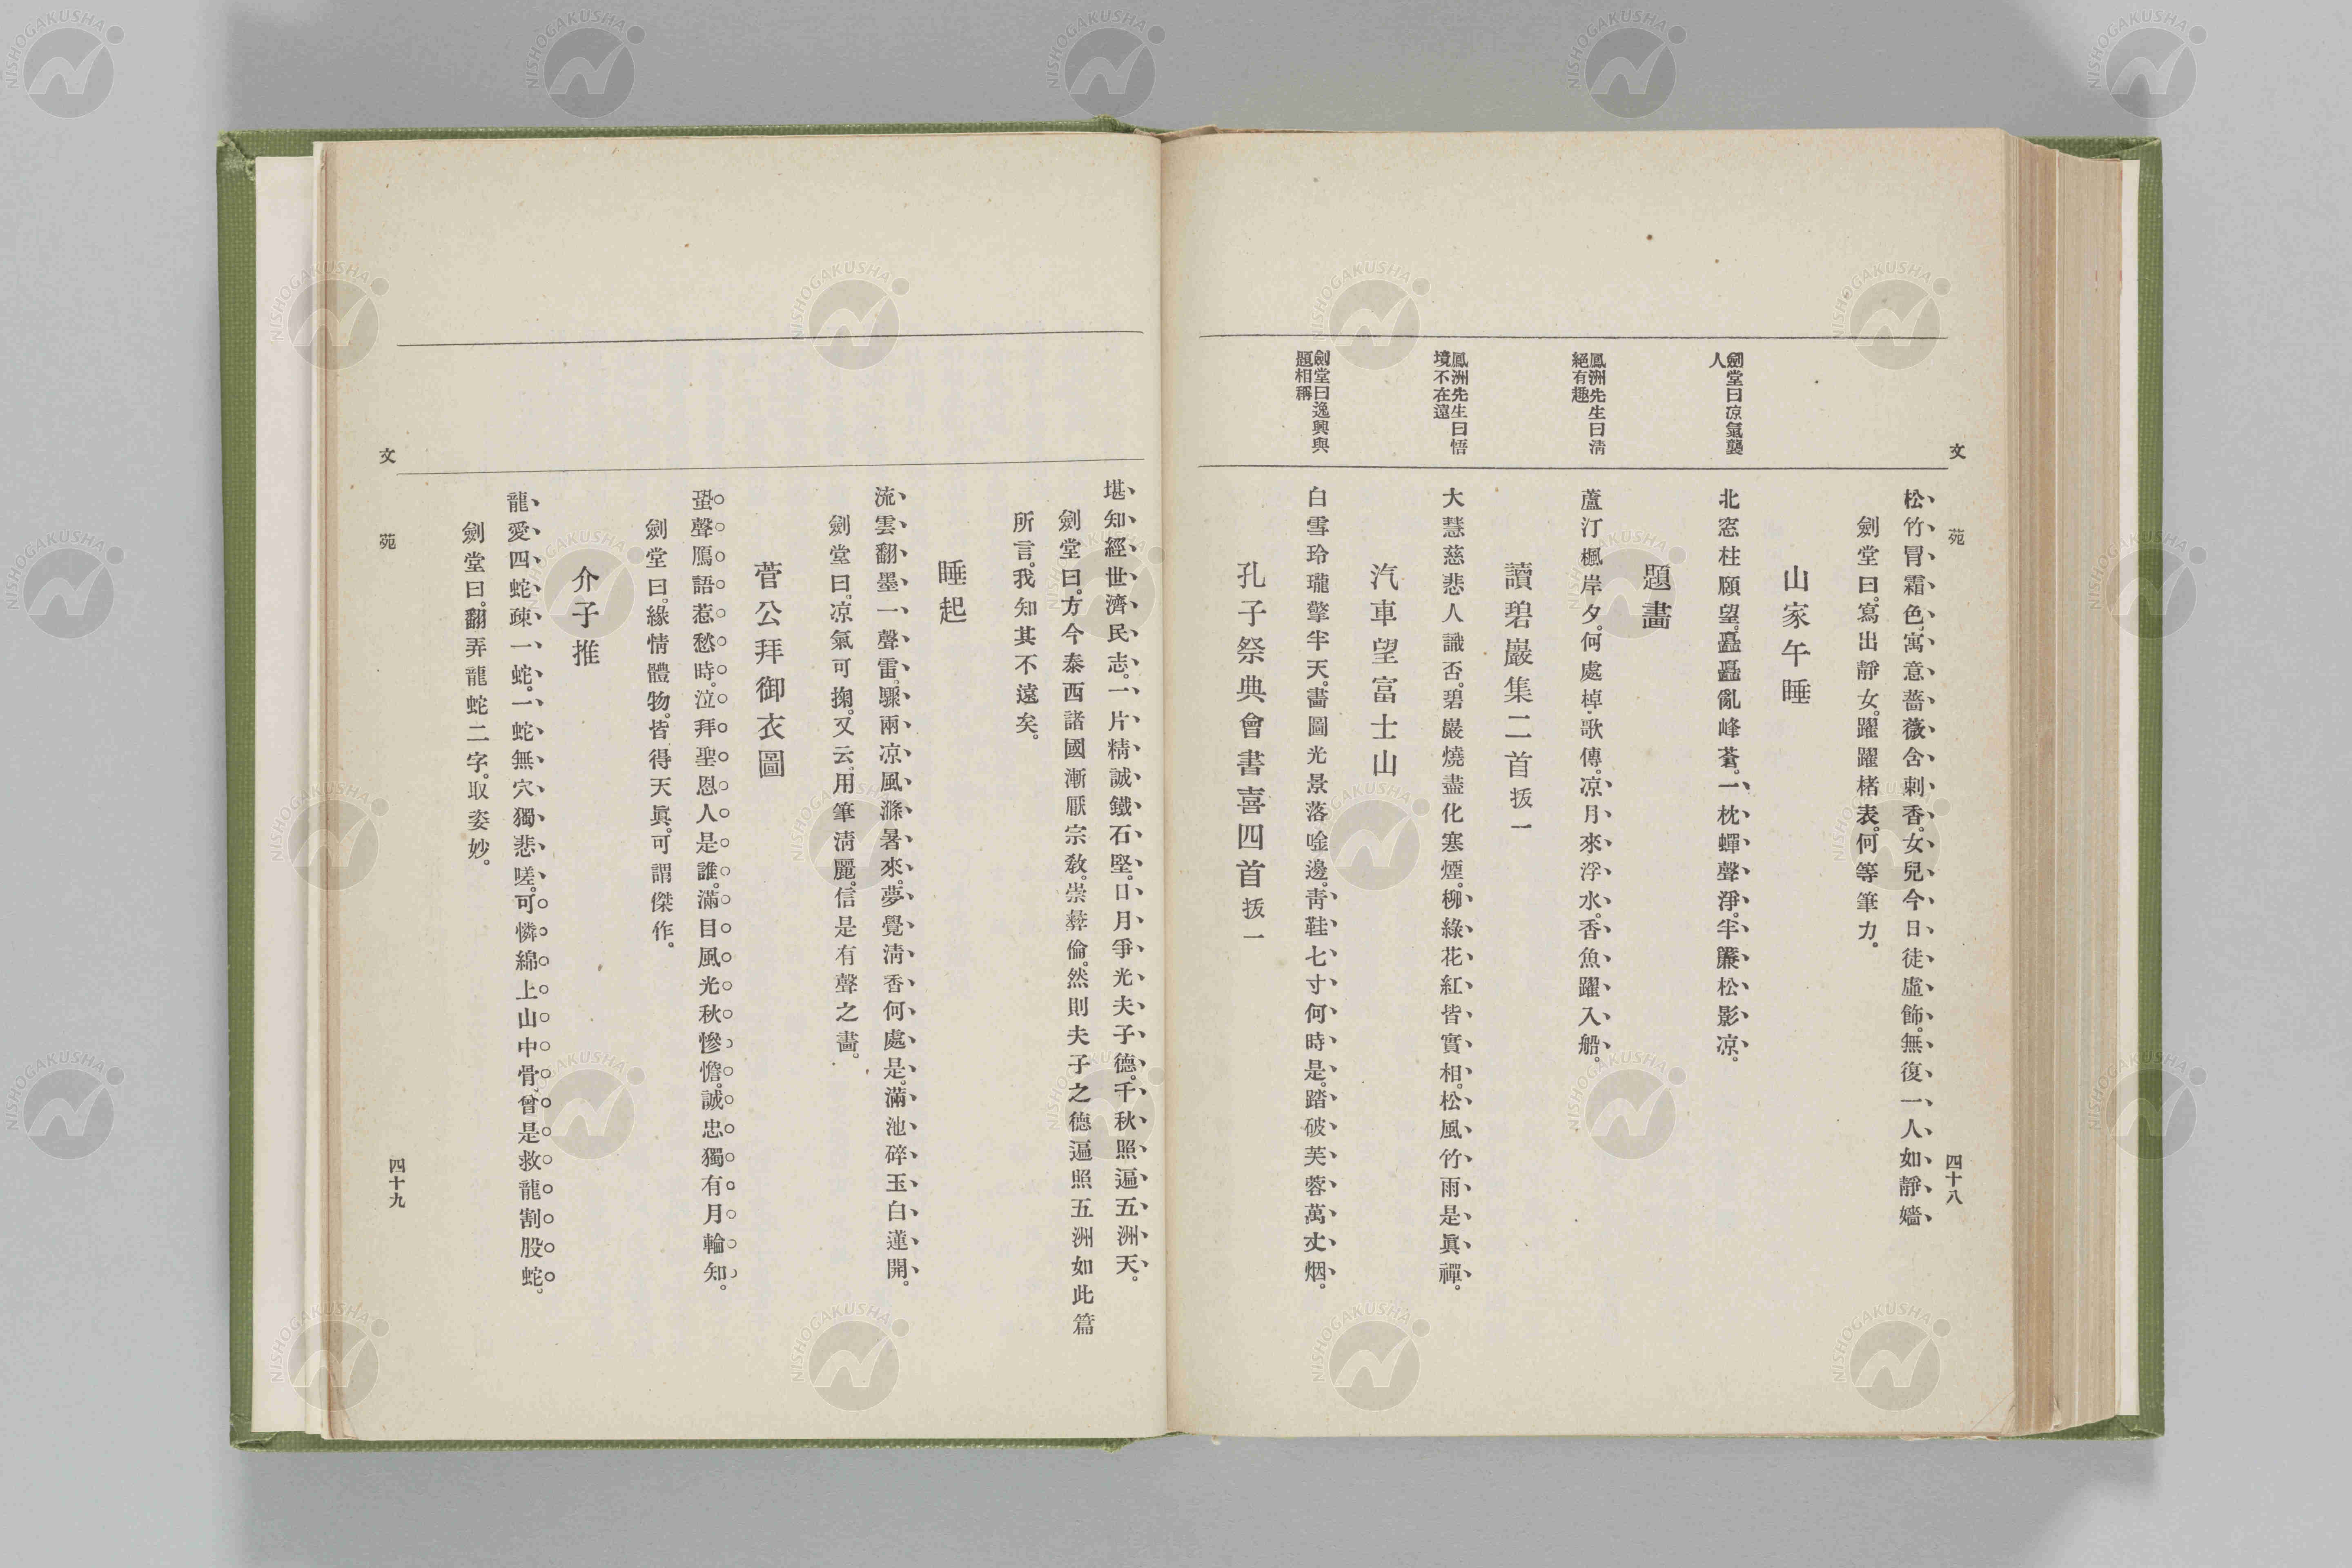 文苑
四十八
松竹冒霜色。寓意薔薇含刺香。女兒今日徒虛飾。無復一人如靜嬙
劍堂曰。寫出靜女。躍躍楮表。何等筆力。
山家午睡
劍堂曰凉氣襲
人
北窓柱願望。矗矗亂峰蒼。一枕蟬聲淨。半簾松影凉。
題畵
鳳洲先生曰淸
絕有趣
蘆汀楓岸夕。何處棹歌傳。凉月來浮水。香魚躍入船。
讀碧巖集二首拔一
鳳洲先生曰悟
境不在遠
大慧慈悲人識否。碧巖燒盡化寒煙。柳綠花紅皆實相。松風竹雨是眞禪。
汽車望富士山
劍堂曰逸興與
題相稱
白雪玲瓏擎半天。畵圖光景落唫邊。靑鞋七寸何時是。踏破芙蓉萬丈烟。
孔子祭典會書喜四首拔一
堪知經世濟民志。一片精誠鐵石堅。日月爭光夫子德。千秋照遍五洲天。
劍堂曰。方今泰西諸國漸厭宗敎。崇彝倫。然則夫子之德遍照五洲如此篇
所言。我知其不遠矣。
睡起
流雲翻墨一聲雷。驟雨凉風滌暑來。夢覺淸香何處是。滿池碎玉白蓮開。
劍堂曰。凉氣可掬。又云。用筆淸麗。信是有聲之畵。
菅公拜御衣圖
蛩聲鴈語惹愁時。泣拜聖恩人是誰。滿目風光秋慘憺。誠忠獨有月輪知。
劍堂曰。緣情體物。皆得天眞。可謂傑作。
介子推
龍愛四蛇疎一蛇。一蛇無穴獨悲嗟。可憐綿上山中骨。曾是救龍割股蛇。
劍堂曰。翻弄龍蛇二字。取姿妙。
文苑
四十九